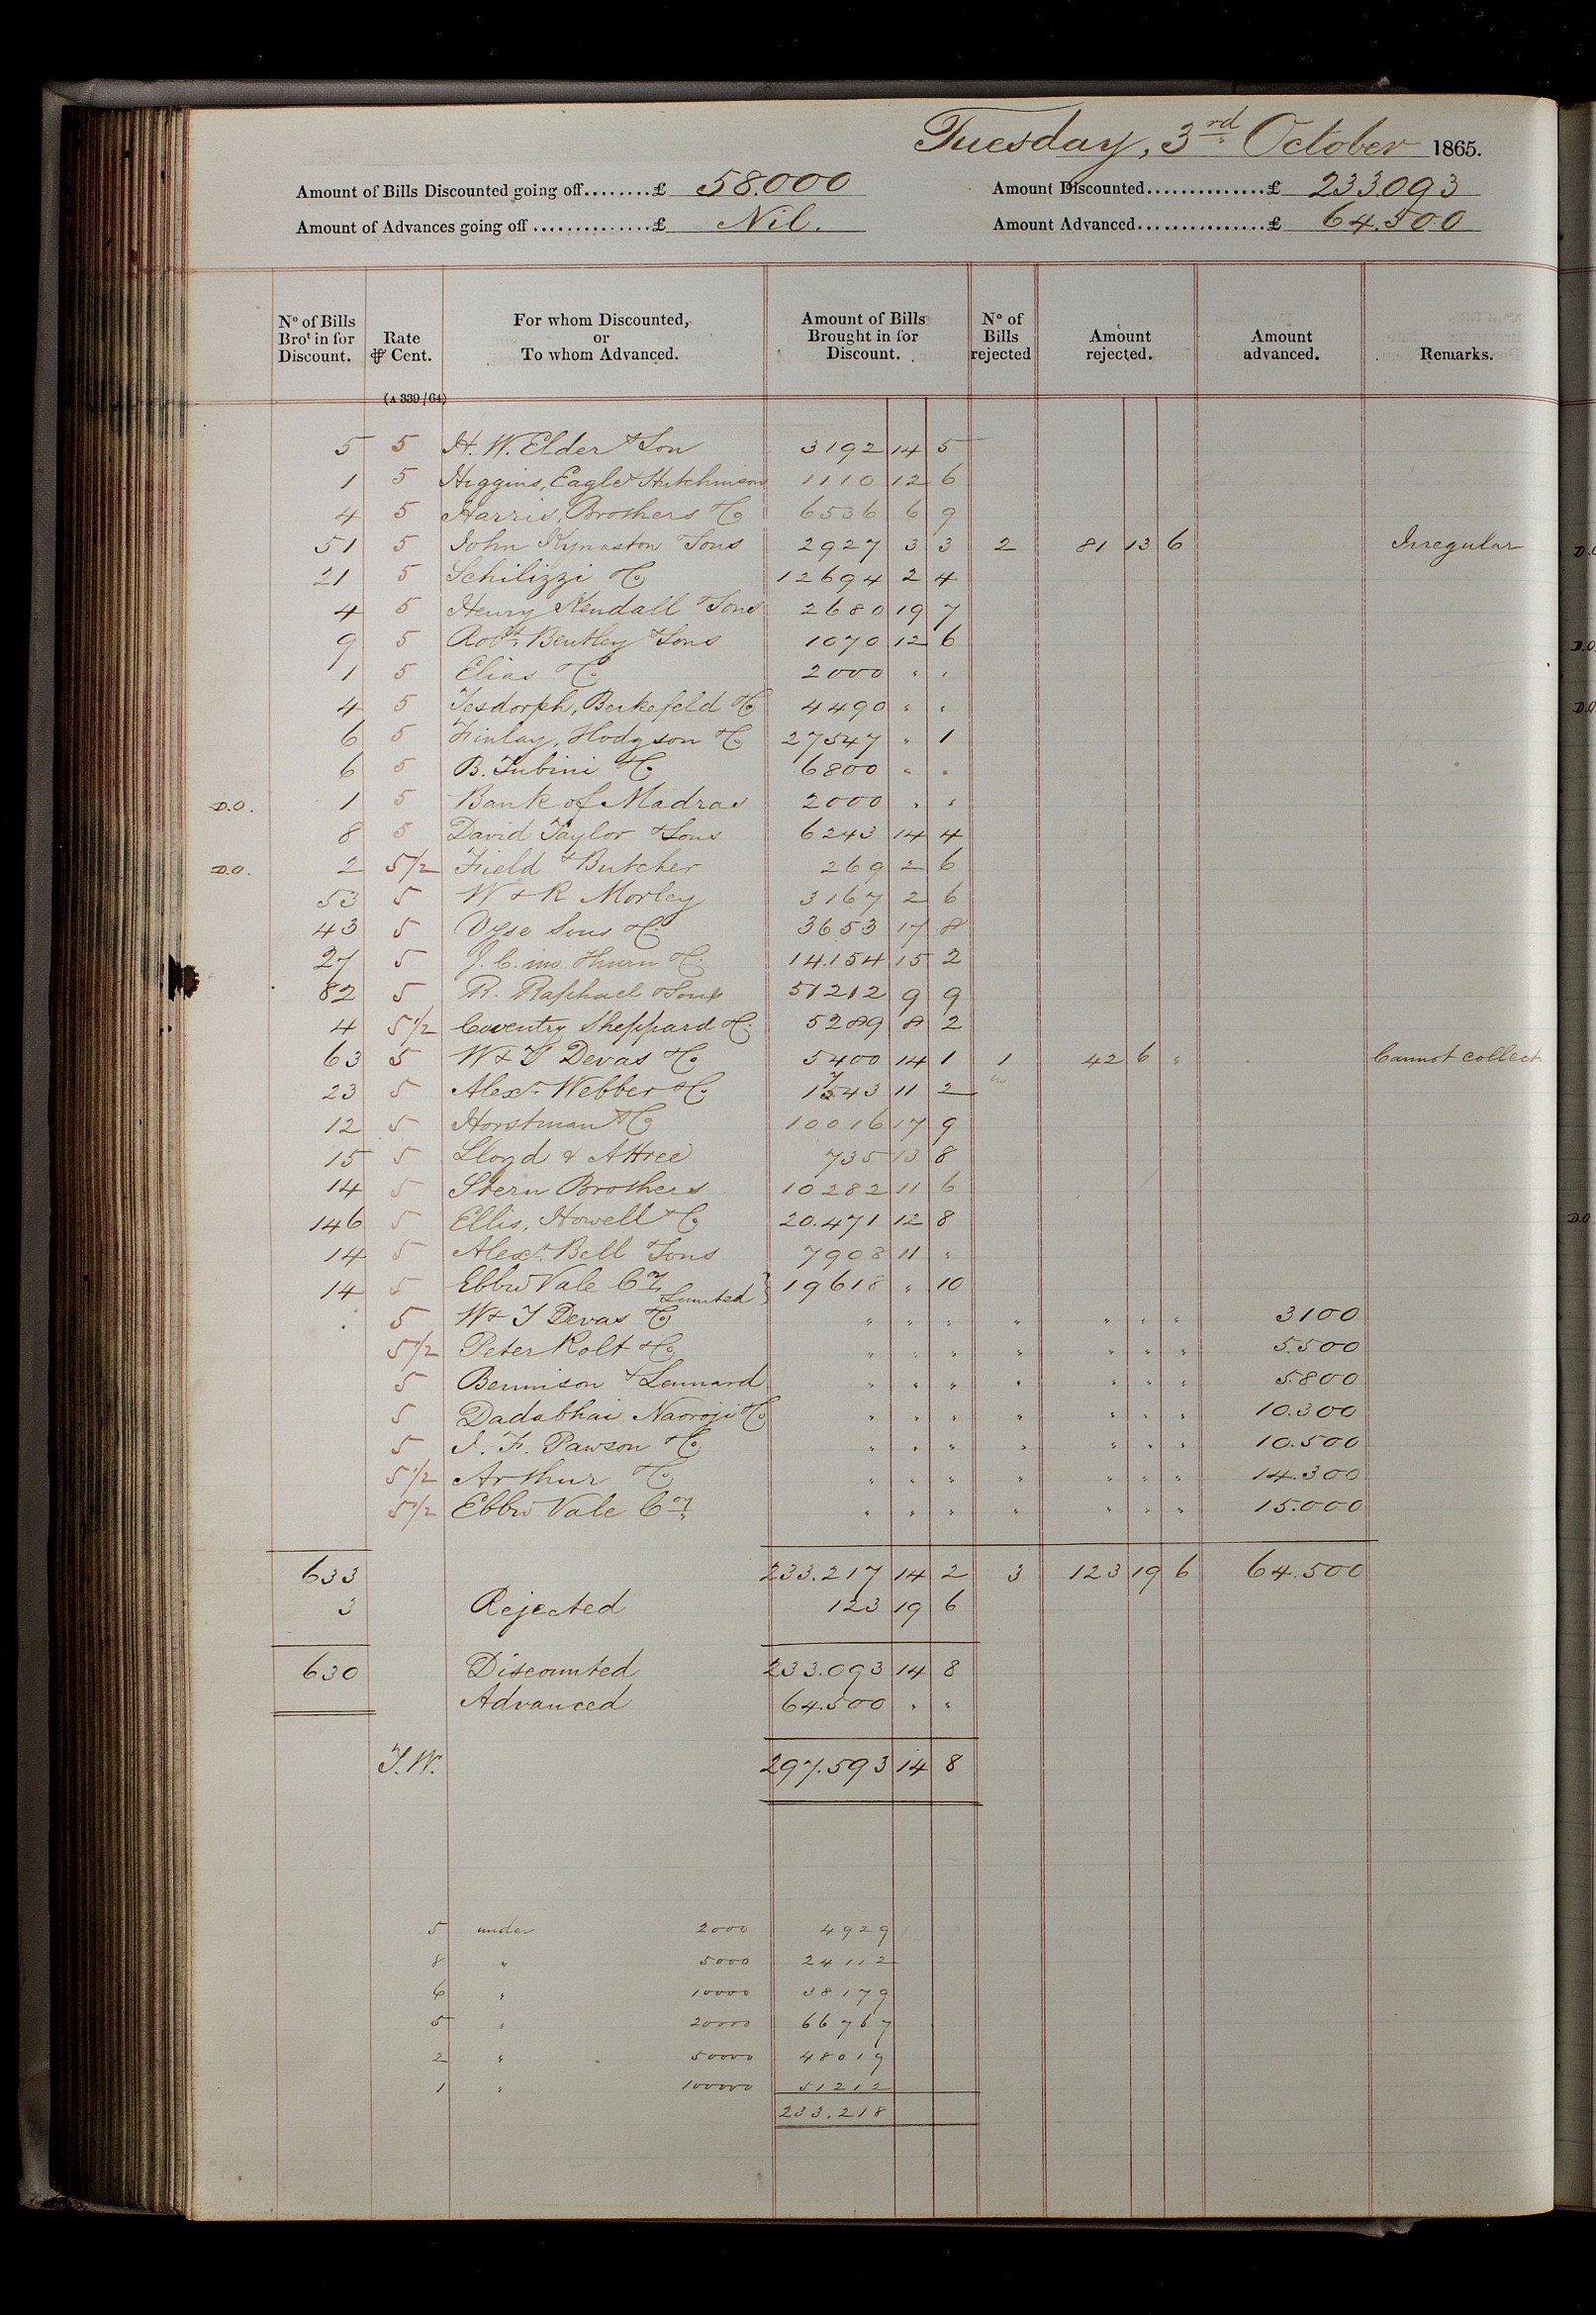 Tuesday, 3rd October 1865.
Amount of Bills Discounted going off........£ 58.000 Amount Discounted..............£ 233.093
Amount of Advances going off...............£ Nil. Amount Advanced...............£ 64.500
No of Bills Brot in for Discount. Rate ⅌ Cent. For whom Discounted, or To whom Advanced. Amount of Bills Brought in for Discount. No of Bills rejected Amount rejected. Amount advanced. Remarks.
(A 339/64)
5 5 H. W. Elder & Son 3192 14 5
1 5 Higgins, Eagle & Hutchinson 1110 12 6
4 5 Harris, Brothers & Co 6536 6 9
51 5 John Kynaston & Sons 2927 3 3 2 81 13 6 Irregular
21 5 Schilizzi & Co 12694 2 4
4 5 Henry Kendall & Sons 2680 19 7
9 5 Robt. Bentley & Sons 1070 12 6
1 5 Elias & Co 2000 " "
4 5 Tesdorph, Berkefeld & Co 4490 " "
6 5 Finlay, Hodgson & Co 27547 " 1
6 5 B. Tubini & Co 6800 " "
D.O. 1 5 Bank of Madras 2000 " "
8 5 David Taylor & Sons 6243 14 4
D.O. 2 5 1/2 Field & Butcher 269 2 6
53 5 W & R Morley 3167 2 6
43 5 Vyse Sons & Co 3653 17 8
27 5 J. C. im Thurn & Co 14.154 15 2
82 5 R. Raphael & Sons 51212 9 9
4 5 1/2 Coventry Sheppard & Co 5289 8 2
63 5 W & T Devas & Co 5400 14 1 1 42 6 " Cannot collect
23 5 Alexr. Webber & Co 1743 11 2
12 5 Horstman & Co 10016 17 9
15 5 Lloyd & Attree 735 13 8
14 5 Stern Brothers 10282 11 6
146 5 Ellis, Howell & Co 20.471 12 8
14 5 Alexr. Bell & Sons 7908 11 "
14 5 Ebbw Vale Coy Limited } 19618 " 10
5 W & T Devas & Co " " " " " " " 3100
5 1/2 Peter Rolt & Co " " " " " " " 5.500
5 Bennison & Lennard " " " " " " " 5.800
5 Dadabhai Naoroji & Co " " " " " " " 10.300
5 J. F. Pawson & Co " " " " " " " 10.500
5 1/2 Arthur & Co " " " " " " " 14.300
5 1/2 Ebbw Vale Coy " " " " " " " 15.000
633 233.217 14 2 3 123 19 6 64.500
3 Rejected 123 19 6
630 Discounted 233.093 14 8
Advanced 64.500 " "
T.W. 297.593 14 8
5 under 2000 4929
8 " 5000 24112
6 " 10000 38179
5 " 20000 66767
2 " 50000 48019
1 " 100000 51212
233.218